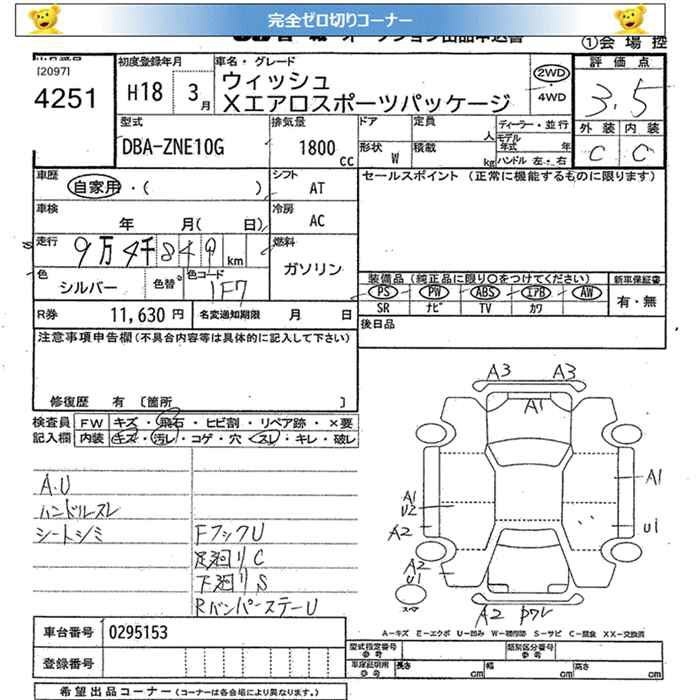 完全ゼロ切りコーナー
①会場控
[2097]
4251
初度登録年月
H18 3月
車名・グレード
ウィッシュ
Xエアロスポーツパッケージ
2WD
・4WD
評価点
3.5
外装 内装
C C
型式
DBA-ZNE10G
排気量
1800cc
ドア
形状 W
定員 人
積載 kg
ディーラー・並行
モデル年式 年
ハンドル 左・右
車歴
自家用・( )
シフト
AT
セールスポイント (正常に機能するものに限ります)
車検
年 月( 日)
冷房
AC
走行
9万4千849km
燃料
ガソリン
色
シルバー
色替
色コード
1F7
装備品(純正品に限り○をつけてください)
新車保証書
PS PW ABS エアB AW
SR ナビ TV カワ
有・無
R券 11,630円
名変通知期限 月 日
後日品
注意事項申告欄(不具合内容等は具体的に記入して下さい)
修復歴 有 〔箇所 〕
検査員記入欄
FW キズ・飛石・ヒビ割・リペア跡・×要
内装 キズ・汚レ・コゲ・穴・スレ・キレ・破レ
A.U
ハンドルスレ
シートシミ
FフックU
足廻リC
下廻リS
RバンパーステーU
A3 A3
A1
A1
A1
U2
A2
U1
A2
U1
スペア
A2 ワレ
A-キズ E-エクボ U-凹み W-補修跡 S-サビ C-腐食 XX-交換済
車台番号 0295153
登録番号
型式指定番号
参考
類別区分番号
参考
車庫証明用
参考
長さ cm 幅 cm 高さ cm
希望出品コーナー(コーナーは各会場により異なります。)